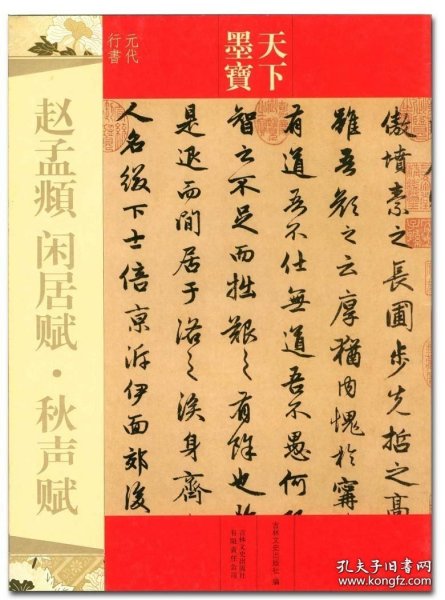 天下
墨寶
元代
行書
赵孟頫 闲居赋·秋声赋
傲墳素之長圃步先哲之高
雖吾顏之云厚猶内愧於甯
有道吾不仕無道吾不愚何
智之不足而拙艱之有餘也於
是退而閒居于洛之涘身齊
人名綴下士倍京泝伊面郊後
吉林文史出版社 編
吉林文史出版社
有限責任公司
孔夫子旧书网